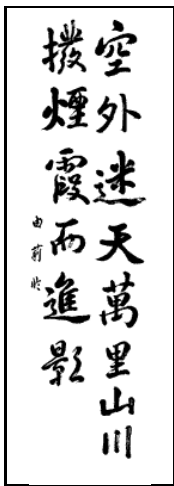 空外迷天萬里山川
撥煙霞兩進影
由莉